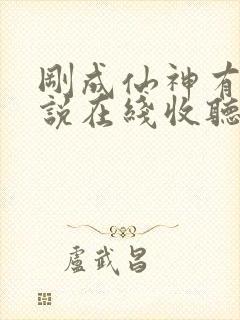 剛成仙神有
說在綫收聽
盧武昌